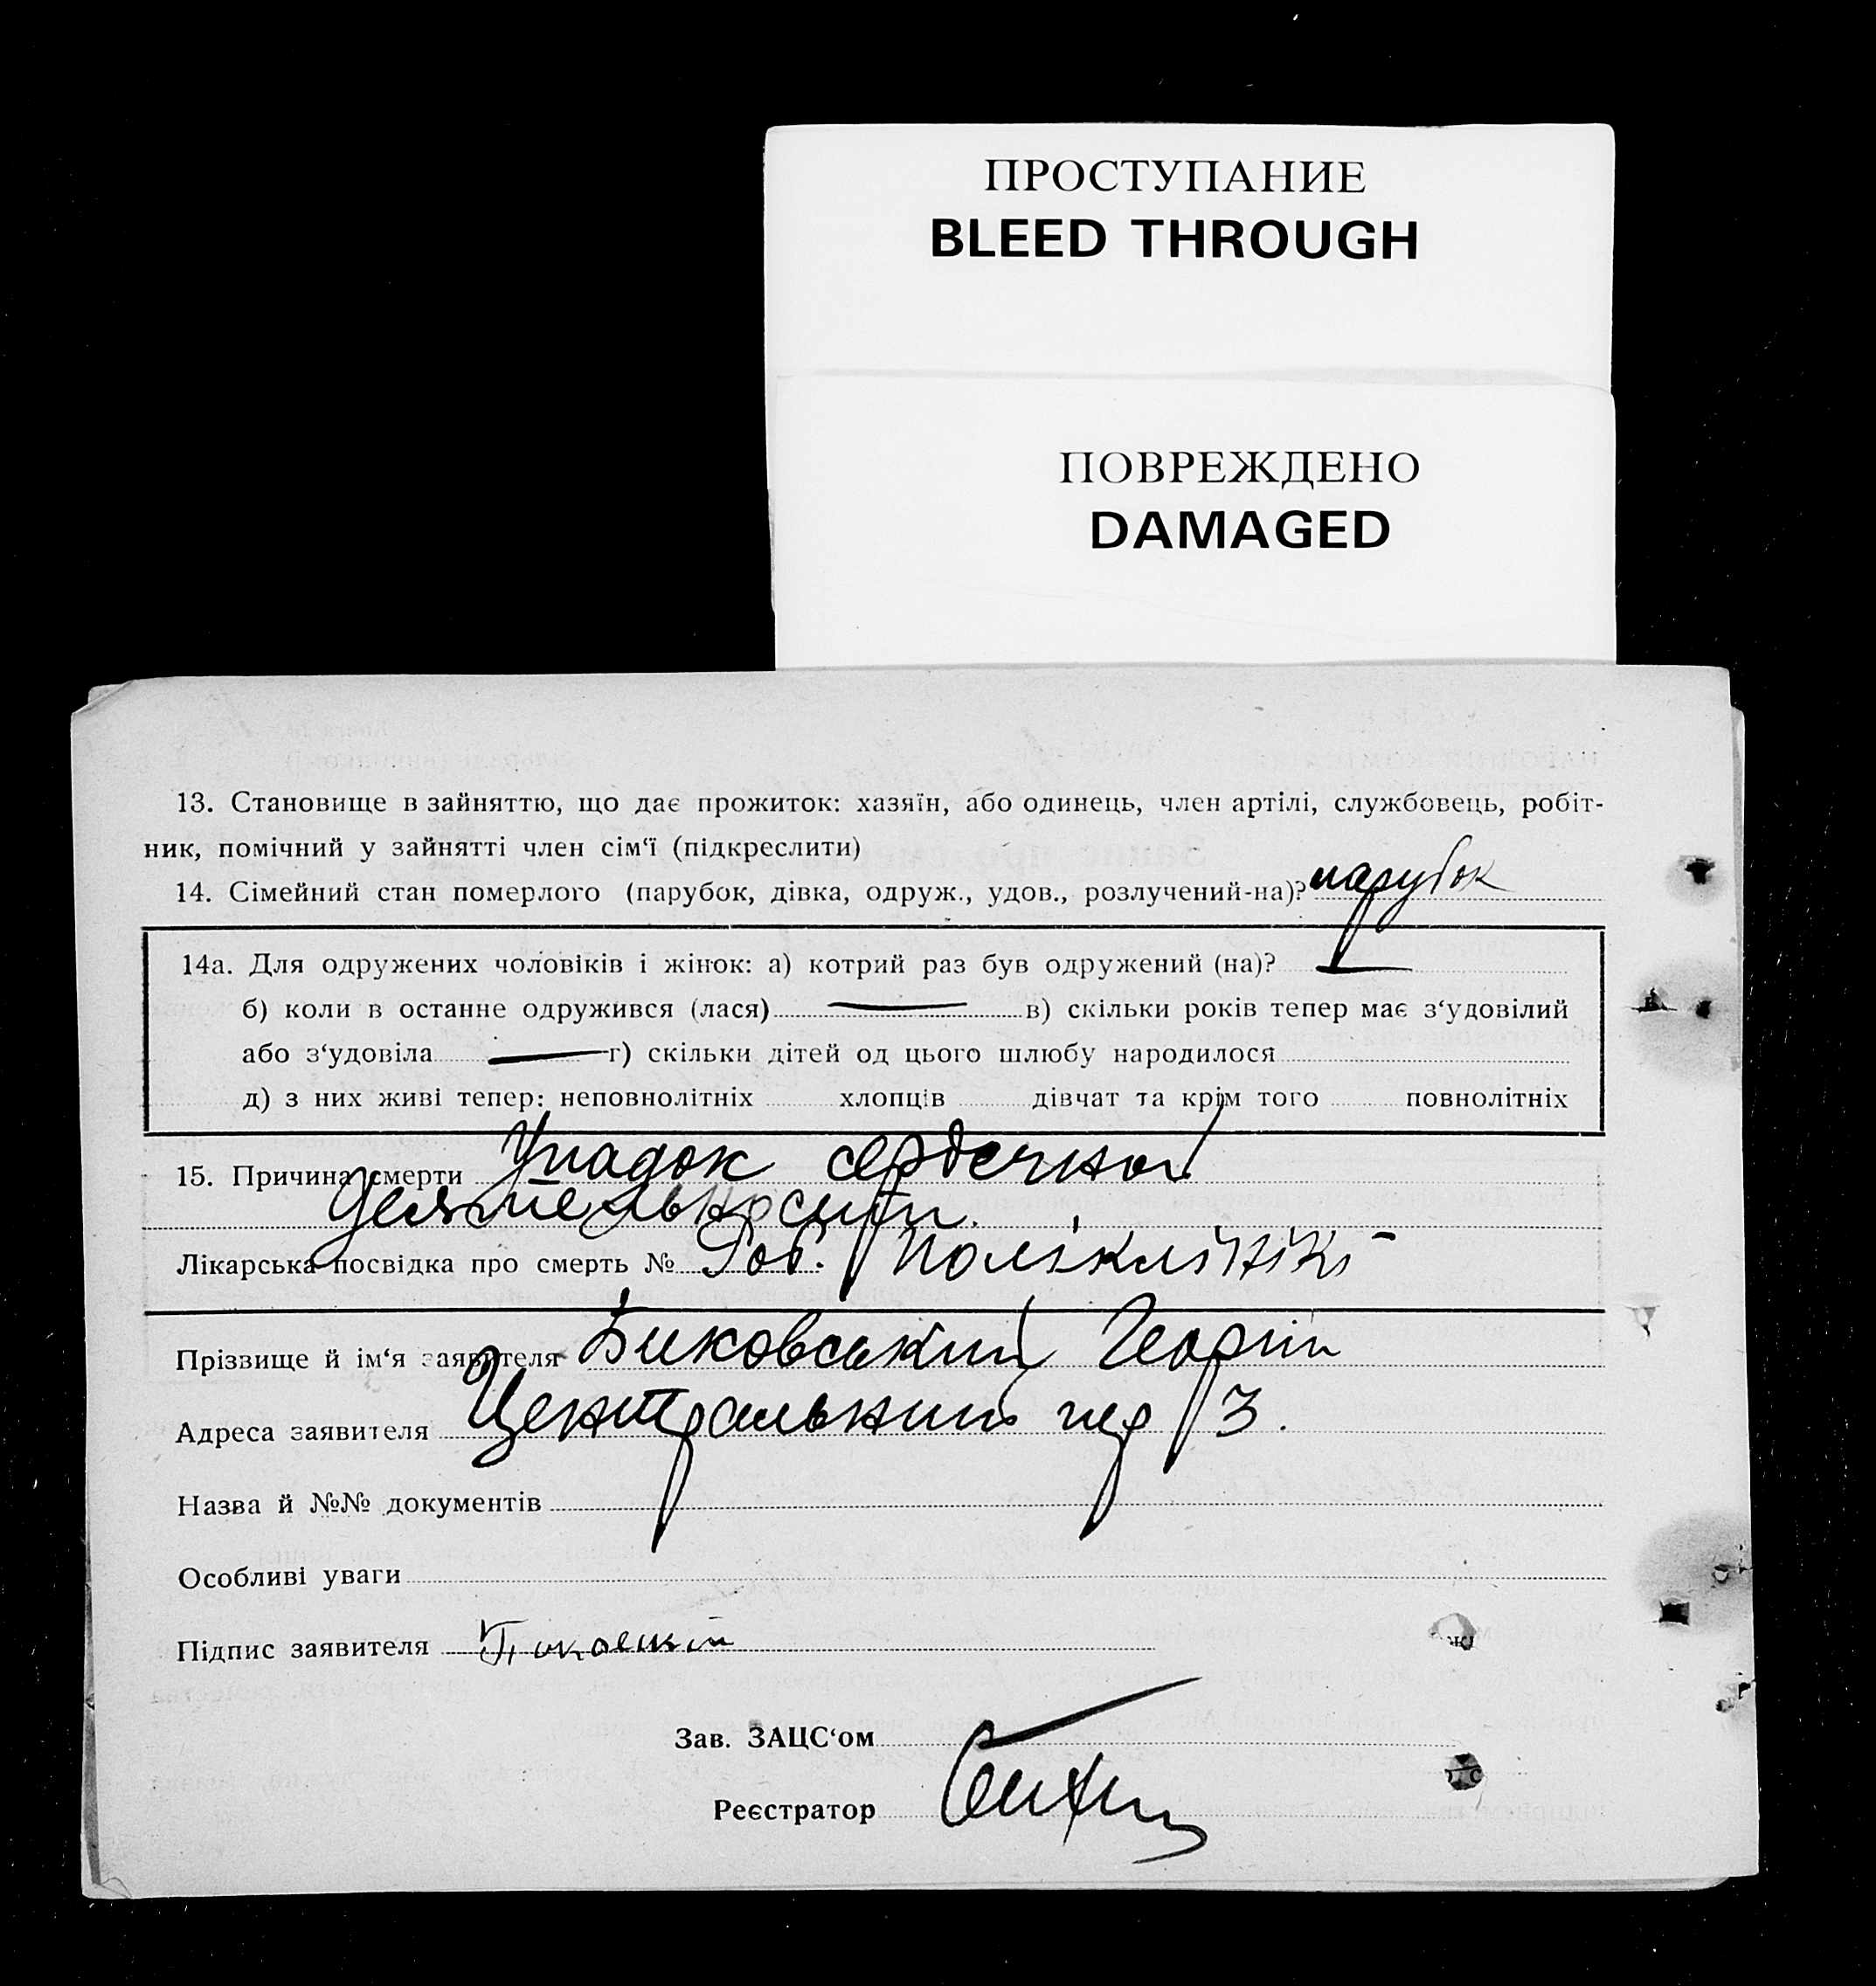 ПРОСТУПАНИЕ
BLEED THROUGH
ПОВРЕЖДЕНО
DAMAGED
13. Становище в зайняттю, що дає прожиток: хазяїн, або одинець, член артілі, службовець, робіт-
ник, помічний у зайнятті член сім‘ї (підкреслити)
14. Сімейний стан померлого (парубок, дівка, одруж., удов., розлучений-на)? парубок
14а. Для одружених чоловіків і жінок: а) котрий раз був одружений (на)? —
б) коли в останне одружився (лася) — в) скільки років тепер має з‘удовілий
або з‘удовіла — г) скільки дітей од цього шлюбу народилося
д) з них живі тепер: неповнолітніх хлопців дівчат та крім того повнолітніх
15. Причина смерти Упадок сердечной
деятельности.
Лікарська посвідка про смерть № Роб. Поліклінікі
Прізвище й ім‘я заявителя Биковський Георгій
Адреса заявителя Центральний пер 3.
Назва й №№ документів
Особливі уваги
Підпис заявителя
Зав. ЗАЦС‘ом
Реєстратор